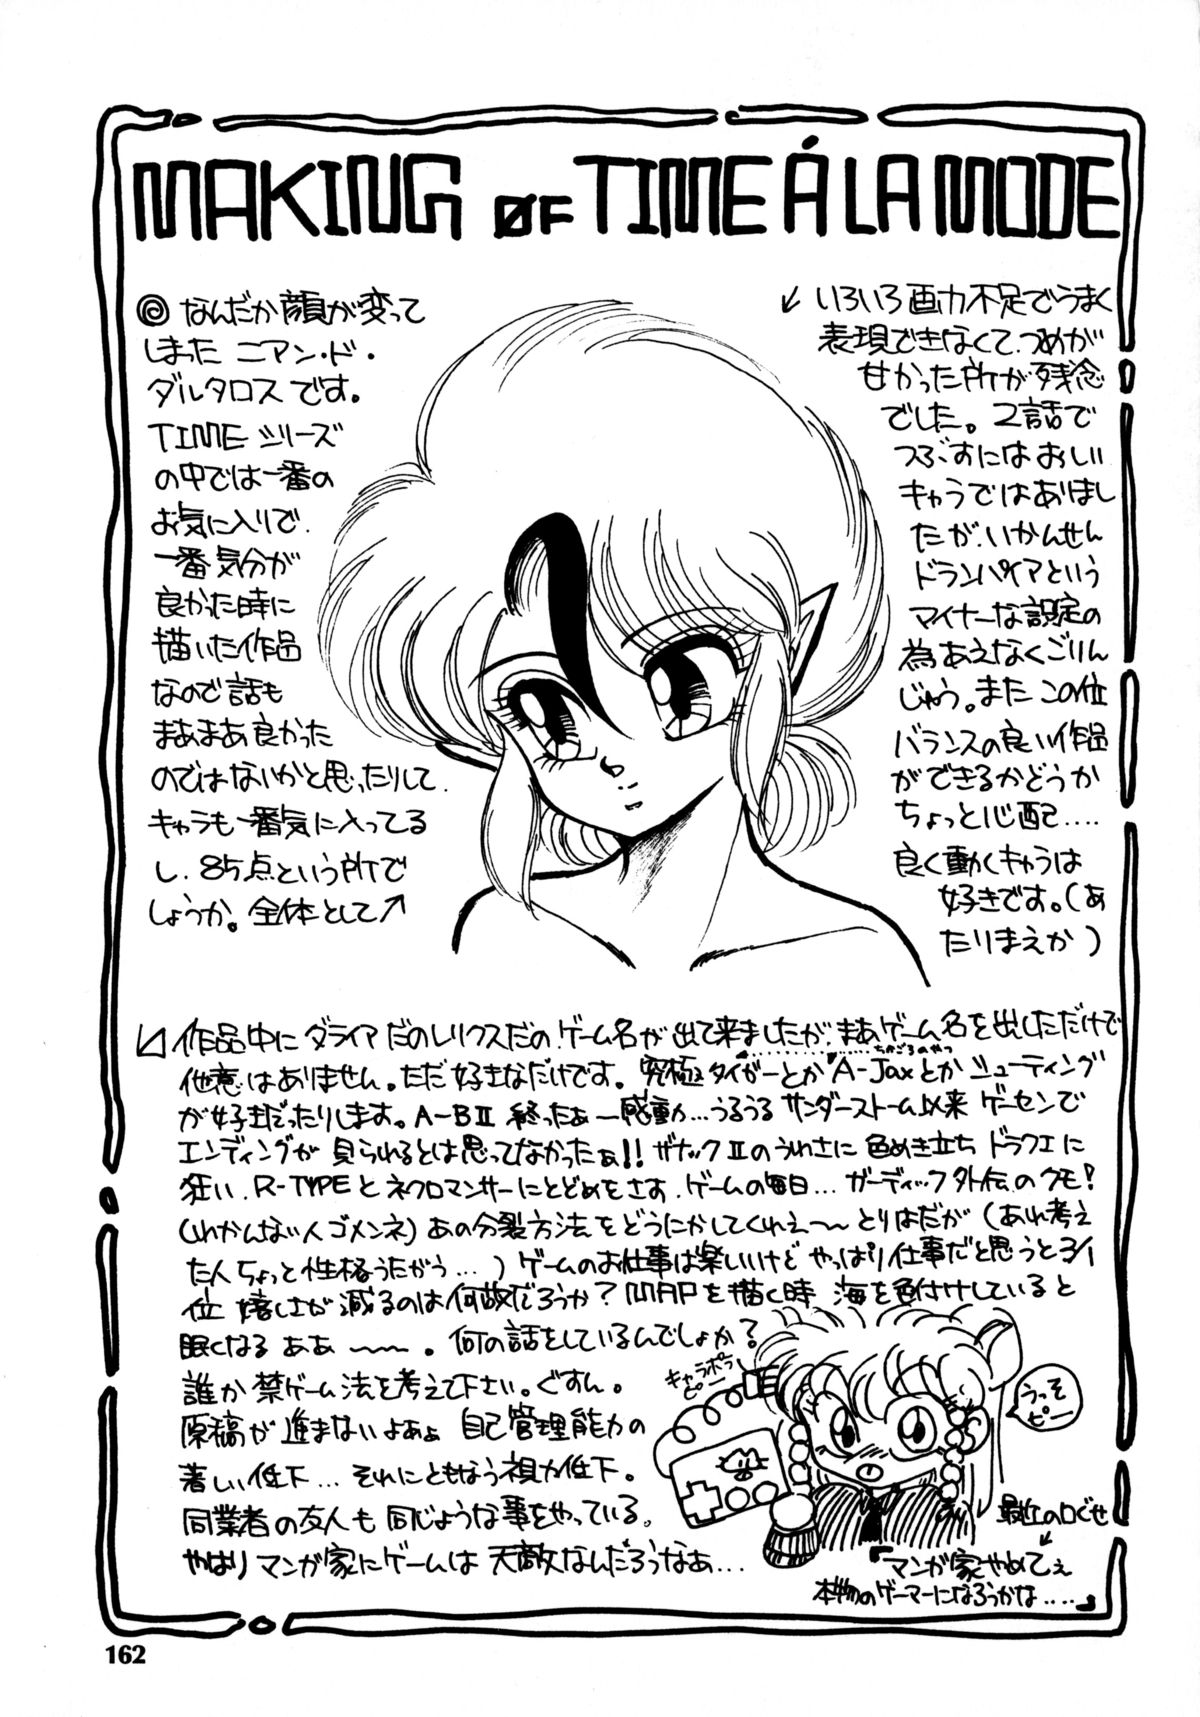 MAKING OF TIME Á LA MODE
なんだか顔が変って
しまった ニアン・ド・
ダルタロスです。
TIMEシリーズ
の中では一番の
お気に入りで、
一番気分が
良かった時に
描いた作品
なので話も
まあまあ良かった
のではないかと思ったりして
キャラも一番気に入ってる
し、85点という所で
しょうか。全体として↗
↙いろいろ画力不足でうまく
表現できなくて、つめが
甘かった所が残念
でした。2話で
つぶすにはおしい
キャラではありまし
たが、いかんせん
ドランパイアという
マイナーな設定の
為あえなくごりん
じゅう。またこの位
バランスの良い作品
ができるかどうか
ちょっと心配….
良く動くキャラは
好きです。(あ
たりまえか)
作品中にダライアだのレリクスだのゲーム名が出て来ましたが、まあゲーム名を出しただけで
他意はありません。ただ好きなだけです。究極タイガーとかA-Jaxとかシューティング
ちかごろのやつ
が好きだったりします。A-BⅡ 終ったぁ〜感動…うるうる サンダーストーム以来 ゲーセンで
エンディングが見られるとは思ってなかったぁ!! ザナックⅡのうわさに色めき立ち ドラクエに
狂い、R-TYPEとネクロマンサーにとどめをさす、ゲームの毎日… ガーディック外伝のクモ!
(わかんない人ゴメンネ)あの分裂方法をどうにかしてくれえ〜 とりはだが(あれ考え
た人ちょっと性格うたがう…)ゲームのお仕事は楽しいけど やっぱり仕事だと思うと3/1
位 嬉しさが減るのは何故だろうか? MAPを描く時 海を色付けしていると
眠くなる ああ〜〜。何の話をしているんでしょか?
誰か禁ゲーム法を考えて下さい。ぐすん。
原稿が進まないよぁぉ 自己管理能力の
著しい低下…それにともなう視力低下。
同業者の友人も同じような事をやっている。
やはりマンガ家にゲームは天敵なんだろうなあ…
キャラポラ
ピー
うっそ
ピー
最近の口ぐせ
『マンガ家やめてぇ
本物のゲーマーになろうかな….』
162